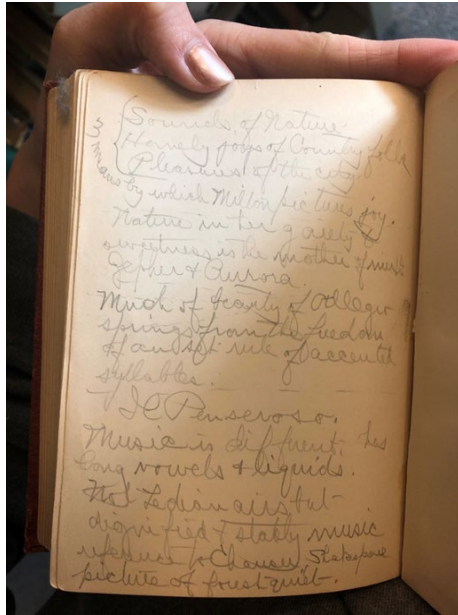 Sounds of Nature
Homely joys of Country folk
Pleasures of the city
3 means by which Milton pictures joy.
Nature in her gaiety &
sweetness is the mother of mirth
Zephyr & Aurora.
Much of beauty of Allegro
springs from the freedom
of and set rule of accented
syllables.
Il Penseroso.
Music is different, has
long vowels & liquids.
Not Lydian airs but
dignified & stately music
reference to Chaucer, Shakespeare
picture of forest quiet.